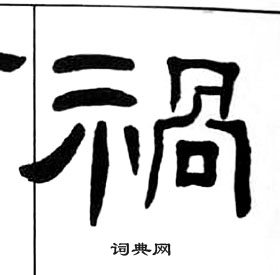 禍
词典网